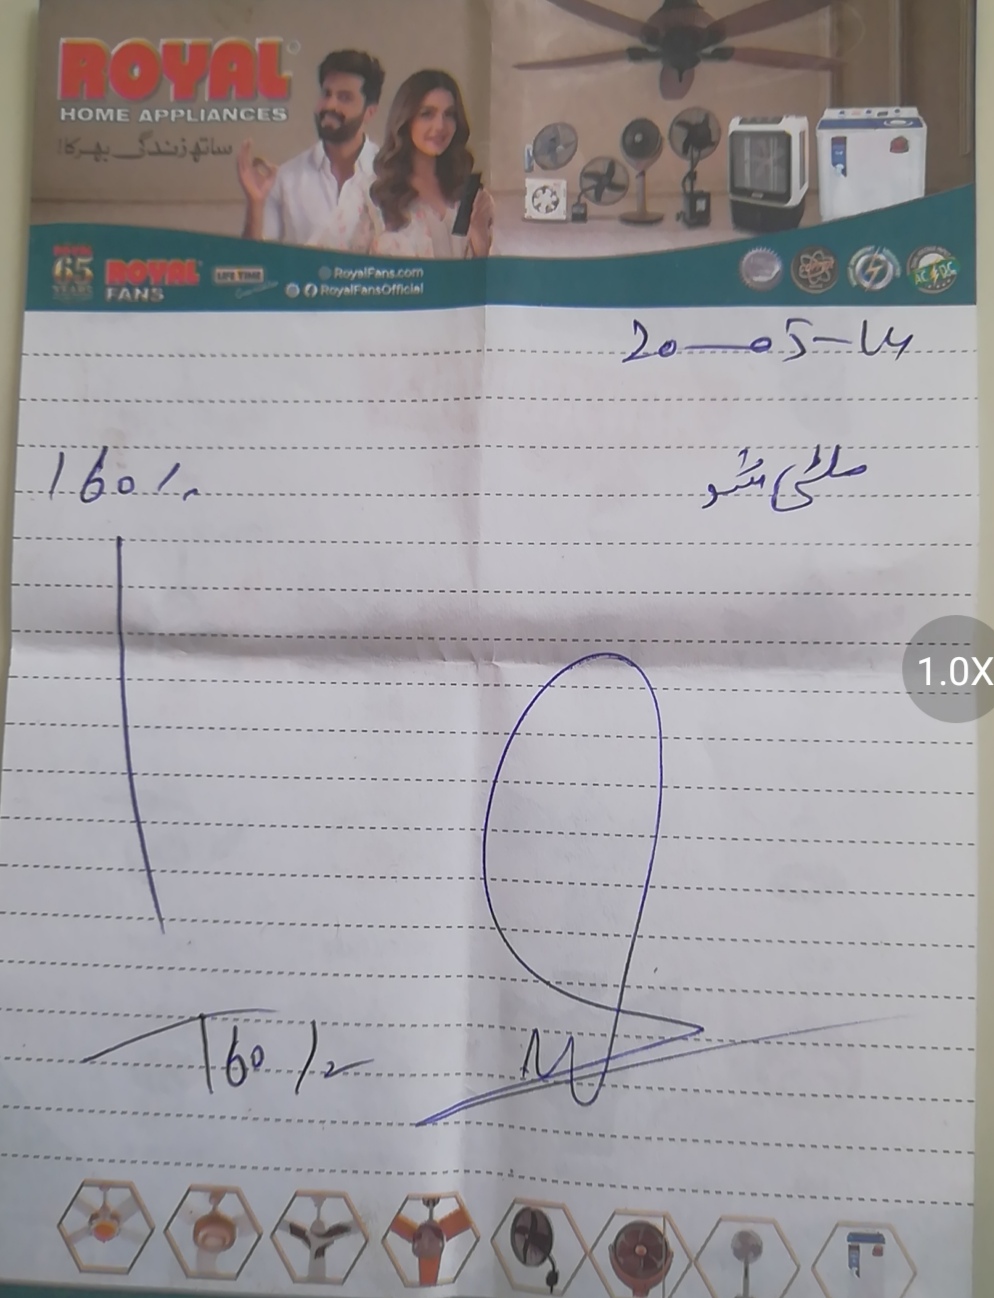 ROYAL
HOME APPLIANCES
ساتھ زندگی بھر کا!
65 YEARS
ROYAL
FANS
LIFE TIME
RoyalFans.com
RoyalFansOfficial
AC DC
20-05-24
160/-
ملٹی
160/-
1.0X